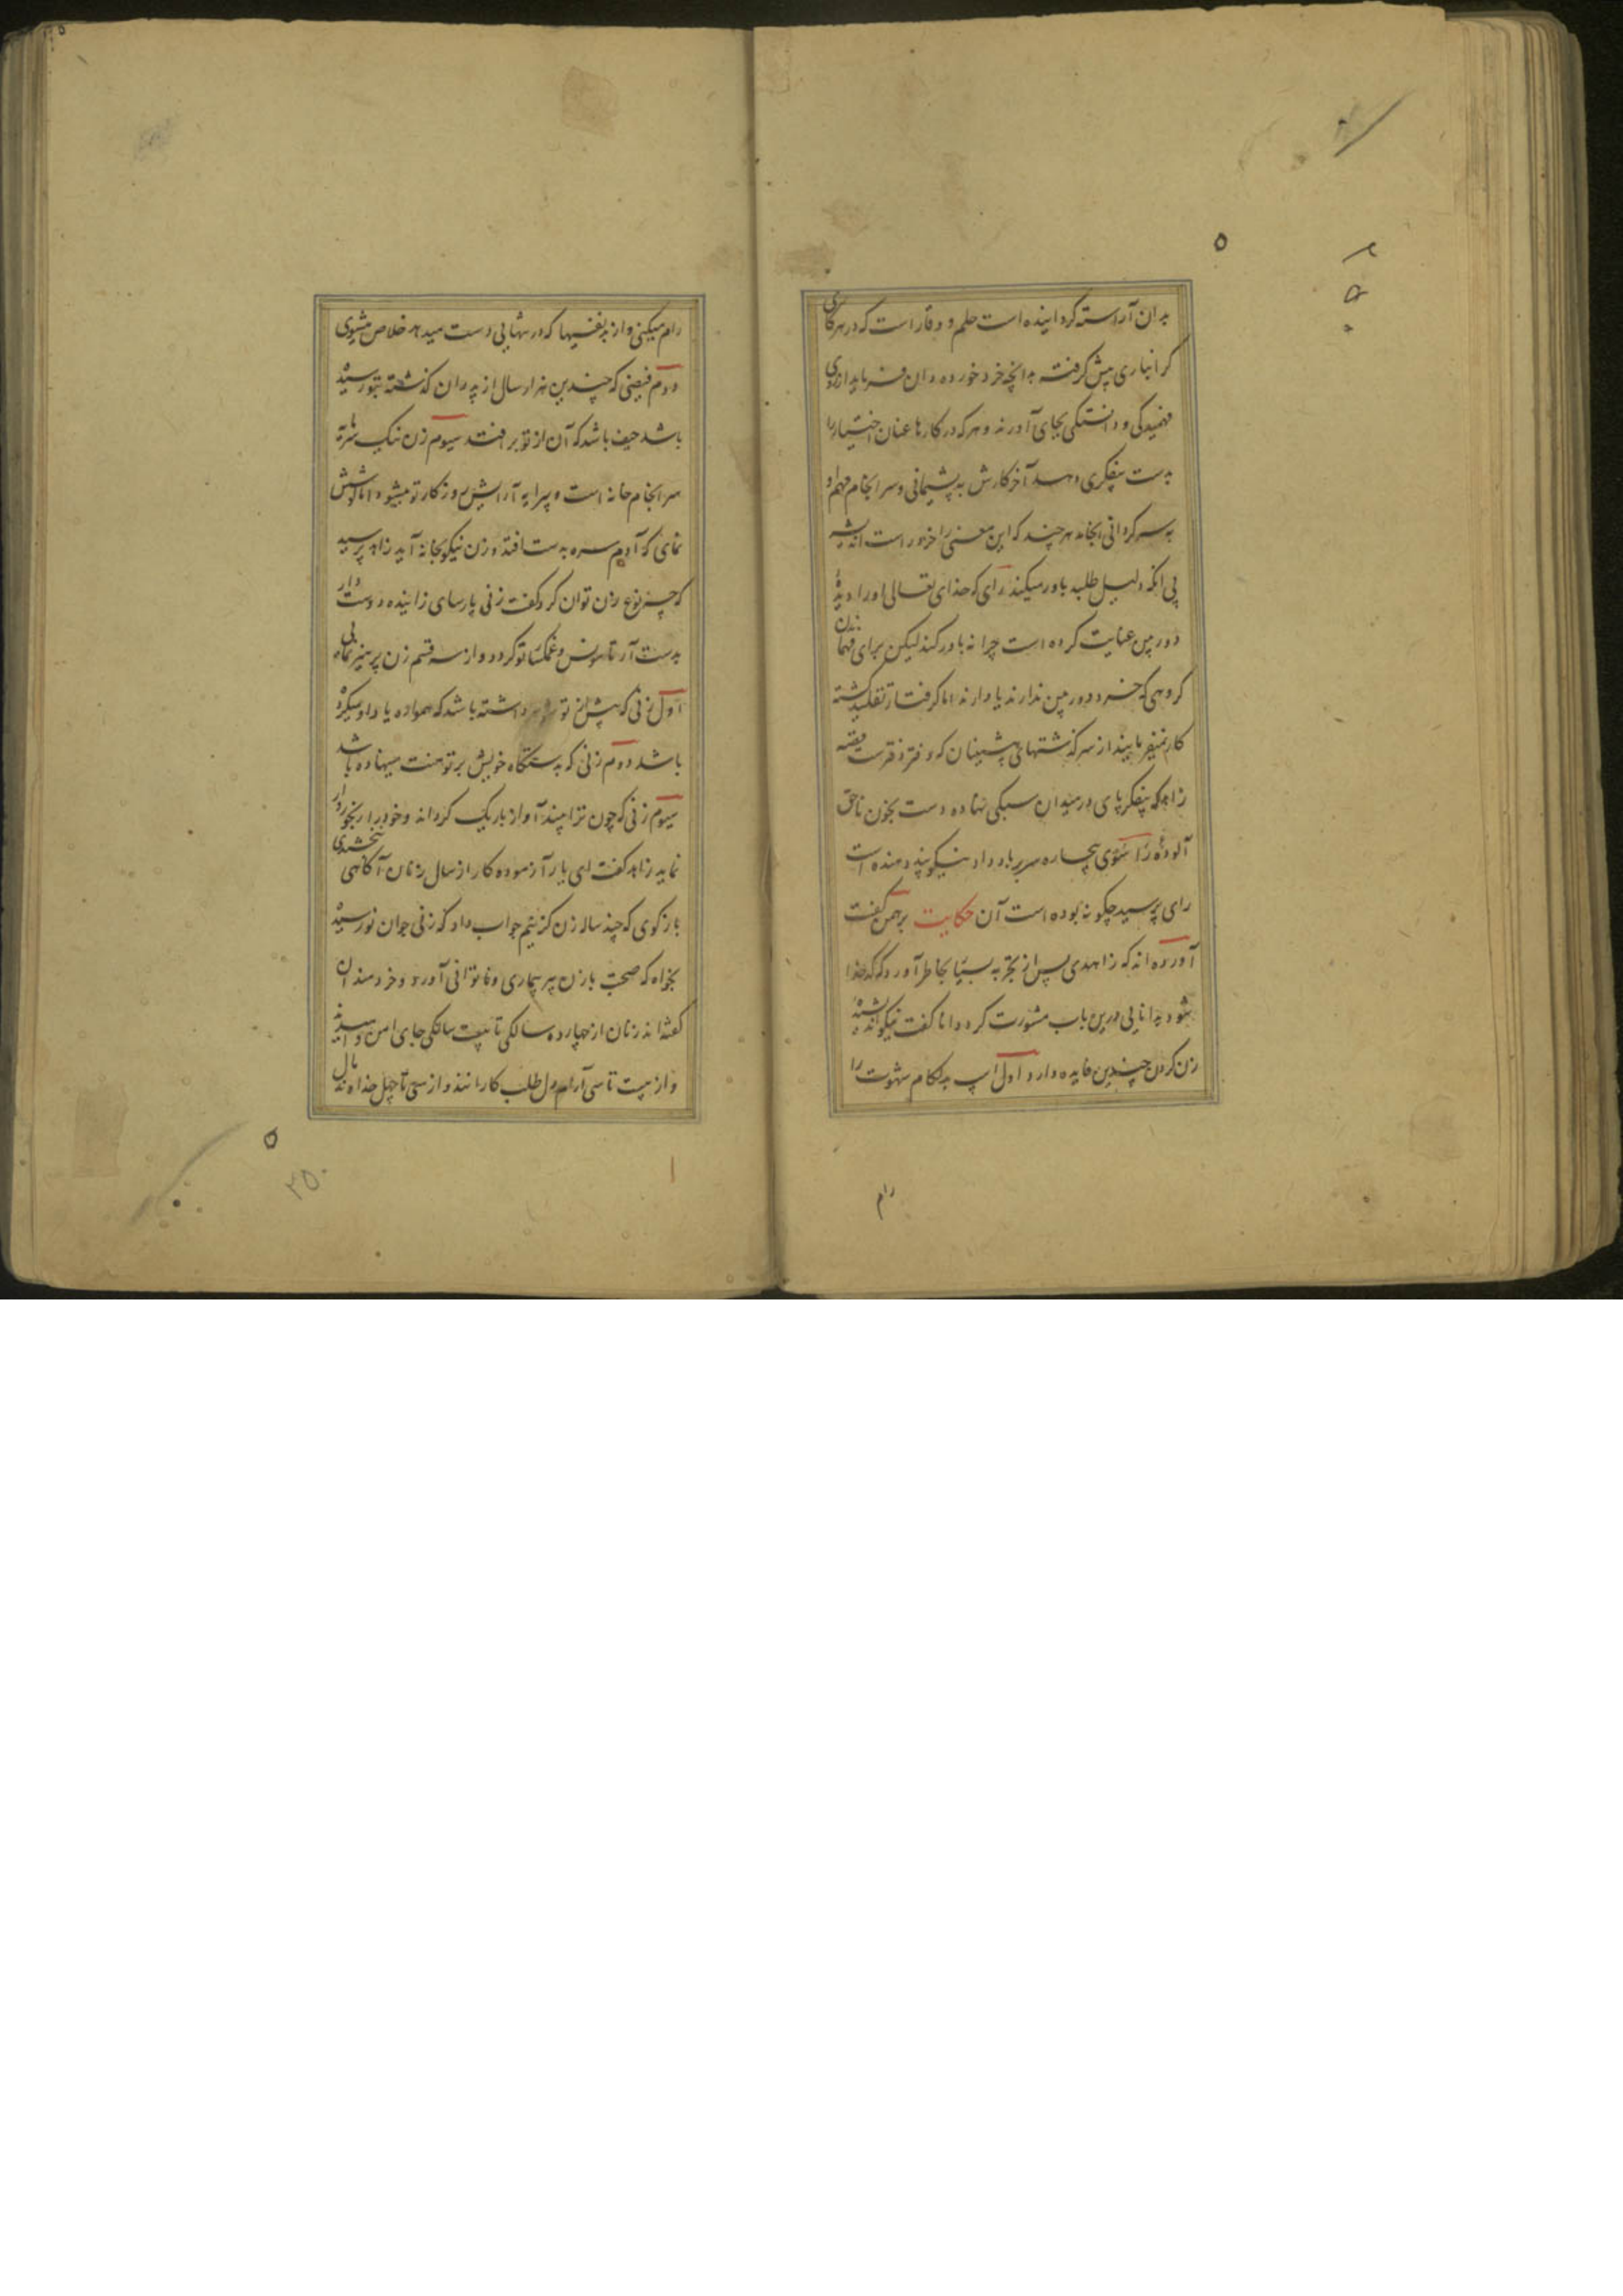 بدان آراسته گردانیده است حلم و وقار است که در هر کاری
گرانباری پیش گرفته بدانچه خرد خورده دان فرماید از روی
فهمیدگی و دانستگی بجای آورند و هر که در کارها عنان اختیار را
بدست بیفکری دهد آخر کارش به پشیمانی و سرانجام مهم او
به سرگردانی انجامد هر چند که این معنی را خردور است اندیشه
بی آنکه دلیل طلبد باور میکند رای که خدای تعالی او را دیدهٔ
دوربین عنایت کرده است چرا نه باور کند لیکن برای فهمانیدن
گروهی که خرد دوربین ندارند یا دارند اما گرفتار تقلید گشته
کار نمیفرمایند از سرگذشتهای پیشینیان که دفتر دفتر است قصه
زاهد که بیفکر پای در میدان سبکی نهاده دست بخون ناحق
آلوده راسوی بیچاره سر بباد داد نیکو پند دهنده است
رای پرسید چگونه بوده است آن حکایت برهمن گفت
آورده اند که زاهدی پس از تجربه بسیار بخاطر آورد که کدخدا
شود بدانایی درین باب مشورت کرد دانا گفت نیکو اندیشیده
زن کردن چندین فایده دارد اول اسپ بدلگام شهوت را
رام
رام میکنی و از بدنفسیها که در تنهایی دست میدهد خلاص میشوی
دوم فیضی که چندین هزار سال از پدران گذشته بتو رسیده
باشد حیف باشد که آن از تو بر افتد سیوم زن نیک
سرانجام خانه است و پیرایه آرایش روزگار تو میشود اما کوشش
نمای که آدم سره بدست افتد و زن نیکو بخانه آید زاهد پرسید
که چه نوع زن توان کرد گفت زنی پارسای زاینده دوست دار
بدست آر تا مونس و غمگسار تو گردد و از سه قسم زن پرهیز نمایی
اول زنی که پیش از تو شوهر داشته باشد که همواره یاد او میکرده
باشد دوم زنی که بدستگاه خویش بر تو منت مینهاده باشد
سیوم زنی که چون ترا بیند آواز باریک گرداند و خود را رنجوردار
نماید زاهد گفت ای یار آزموده کار از سال زنان آگاهی بخشیدی
باز گوی که چند ساله زن گزینم جواب داد که زنی جوان نورسیده
بخواه که صحبت با زن پیر بیماری و ناتوانی آورد و خردمندان
گفته اند زنان از چهارده سالگی تا بیست سالگی جای امن و امیدند
و از بیست تا سی آرام دل طلب کارانند و از سی تا چهل خداوند مال
۲۵۰